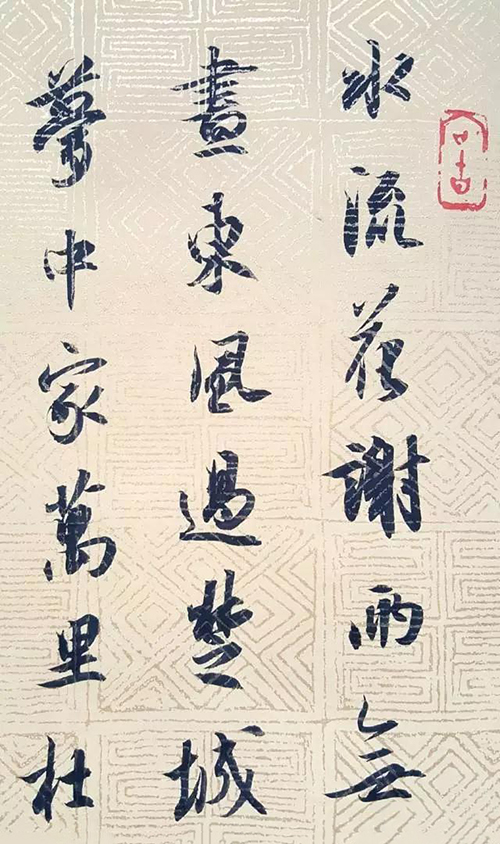 水流花謝兩無
盡東風過楚城
夢中家萬里杜